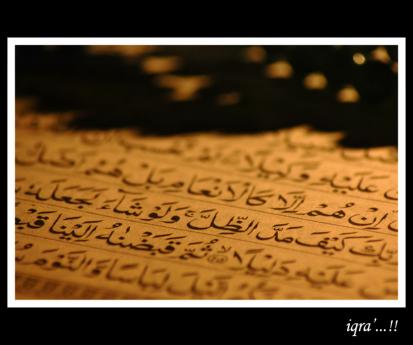 عَلَيْهِ وَكِيلًا
إِنْ هُمْ إِلَّا كَالْأَنْعَامِ بَلْ هُمْ
كَيْفَ مَدَّ الظِّلَّ وَلَوْ شَاءَ لَجَعَلَهُ
عَلَيْهِ دَلِيلًا ثُمَّ قَبَضْنَاهُ إِلَيْنَا
لِبَاسًا وَالنَّوْمَ
iqra'...!!